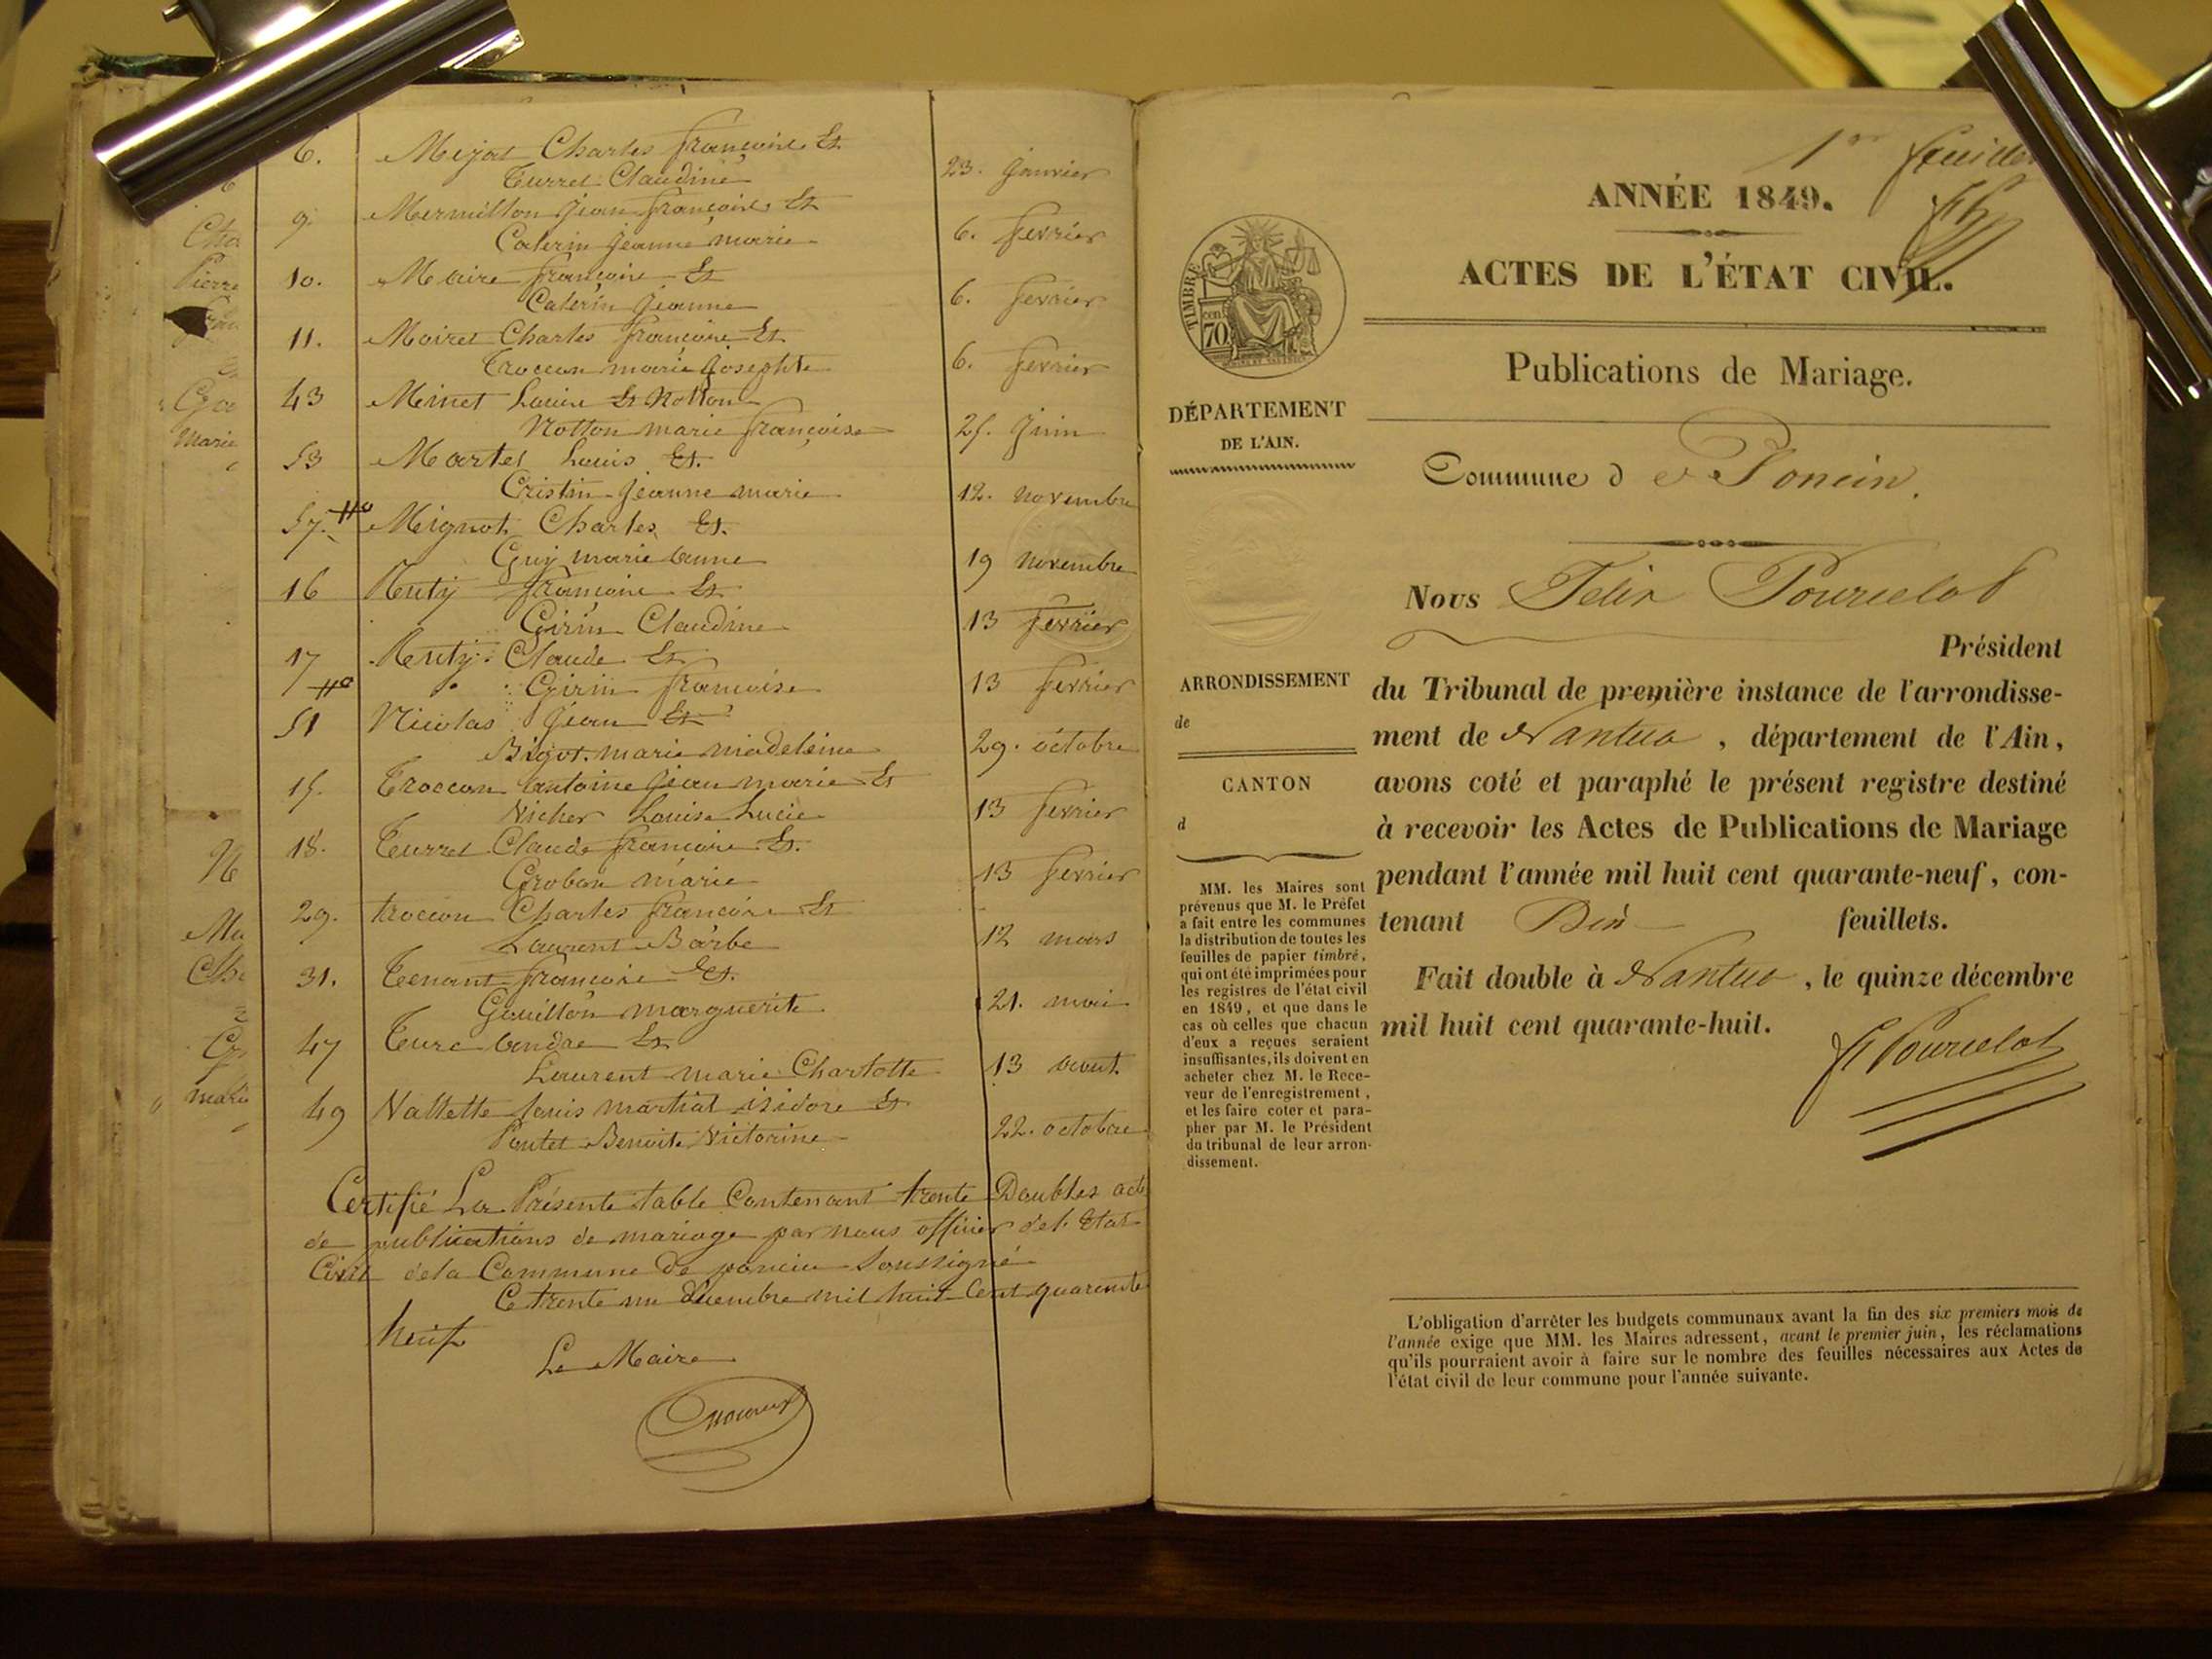 6. Mejat Charles françoise Et
Turrel Claudine 23. janvier
9. Mermillon jean françoise Et
Caterin jeanne marie 6. fevrier
10. Maire françoise Et
Caterin jeanne 6. fevrier
11. Moiret Charles françoise Et
Troccon marie josephte 6. fevrier
43 Minet Louise Et Notton
Notton marie françoise 25. juin
53 Martel Louis Et.
Cristin jeanne marie 12. novembre
57. Mignot Charles Et.
Guy marie anne 19 novembre
16 françoise Et
Girin Claudine 13 fevrier
17 Claude Et
Girin françoise 13 fevrier
51 Nicolas jean Et
Bigot marie madeleine 29. octobre
15. Troccon antoine jean marie Et
Vicher Louise Lucie 13 fevrier
18. Turrel Claude françoise Et.
Groban marie 13 fevrier
29. troccon Charles françoise Et
Laurent Barbe 12 mars
31. Tenant françoise Et.
Guillon marguerite 21. mai
47 Turc Et
Laurent marie Charlotte 13 aout.
49 Vallette louis martial isidore Et
Pontet Benoite Victorine 22. octobre
Certifié La Présente table Contenant trente Doubles acte
de publications de mariage par nous officier del Etat
Civil dela Commune de poncin Soussigné
Ce trente un décembre mil huit Cent quarente
neuf
Le Maire
1er feuillet
ANNÉE 1849.
ACTES DE L'ÉTAT CIVIL.
TIMBRE
cen
70
Publications de Mariage.
DÉPARTEMENT
DE L'AIN.
Commune de Poncin.
Nous Felix Pourcelot
Président
ARRONDISSEMENT
de
CANTON
d
du Tribunal de première instance de l'arrondisse-
ment de Nantua, département de l'Ain,
avons coté et paraphé le présent registre destiné
à recevoir les Actes de Publications de Mariage
pendant l'année mil huit cent quarante-neuf, con-
tenant Dix feuillets.
Fait double à Nantua, le quinze décembre
mil huit cent quarante-huit.
F Pourcelot
MM. les Maires sont
prévenus que M. le Préfet
a fait entre les communes
la distribution de toutes les
feuilles de papier timbré,
qui ont été imprimées pour
les registres de l'état civil
en 1849, et que dans le
cas où celles que chacun
d'eux a reçues seraient
insuffisantes, ils doivent en
acheter chez M. le Rece-
veur de l'enregistrement,
et les faire coter et para-
pher par M. le Président
du tribunal de leur arron-
dissement.
L'obligation d'arrêter les budgets communaux avant la fin des six premiers mois de
l'année exige que MM. les Maires adressent, avant le premier juin, les réclamations
qu'ils pourraient avoir à faire sur le nombre des feuilles nécessaires aux Actes de
l'état civil de leur commune pour l'année suivante.